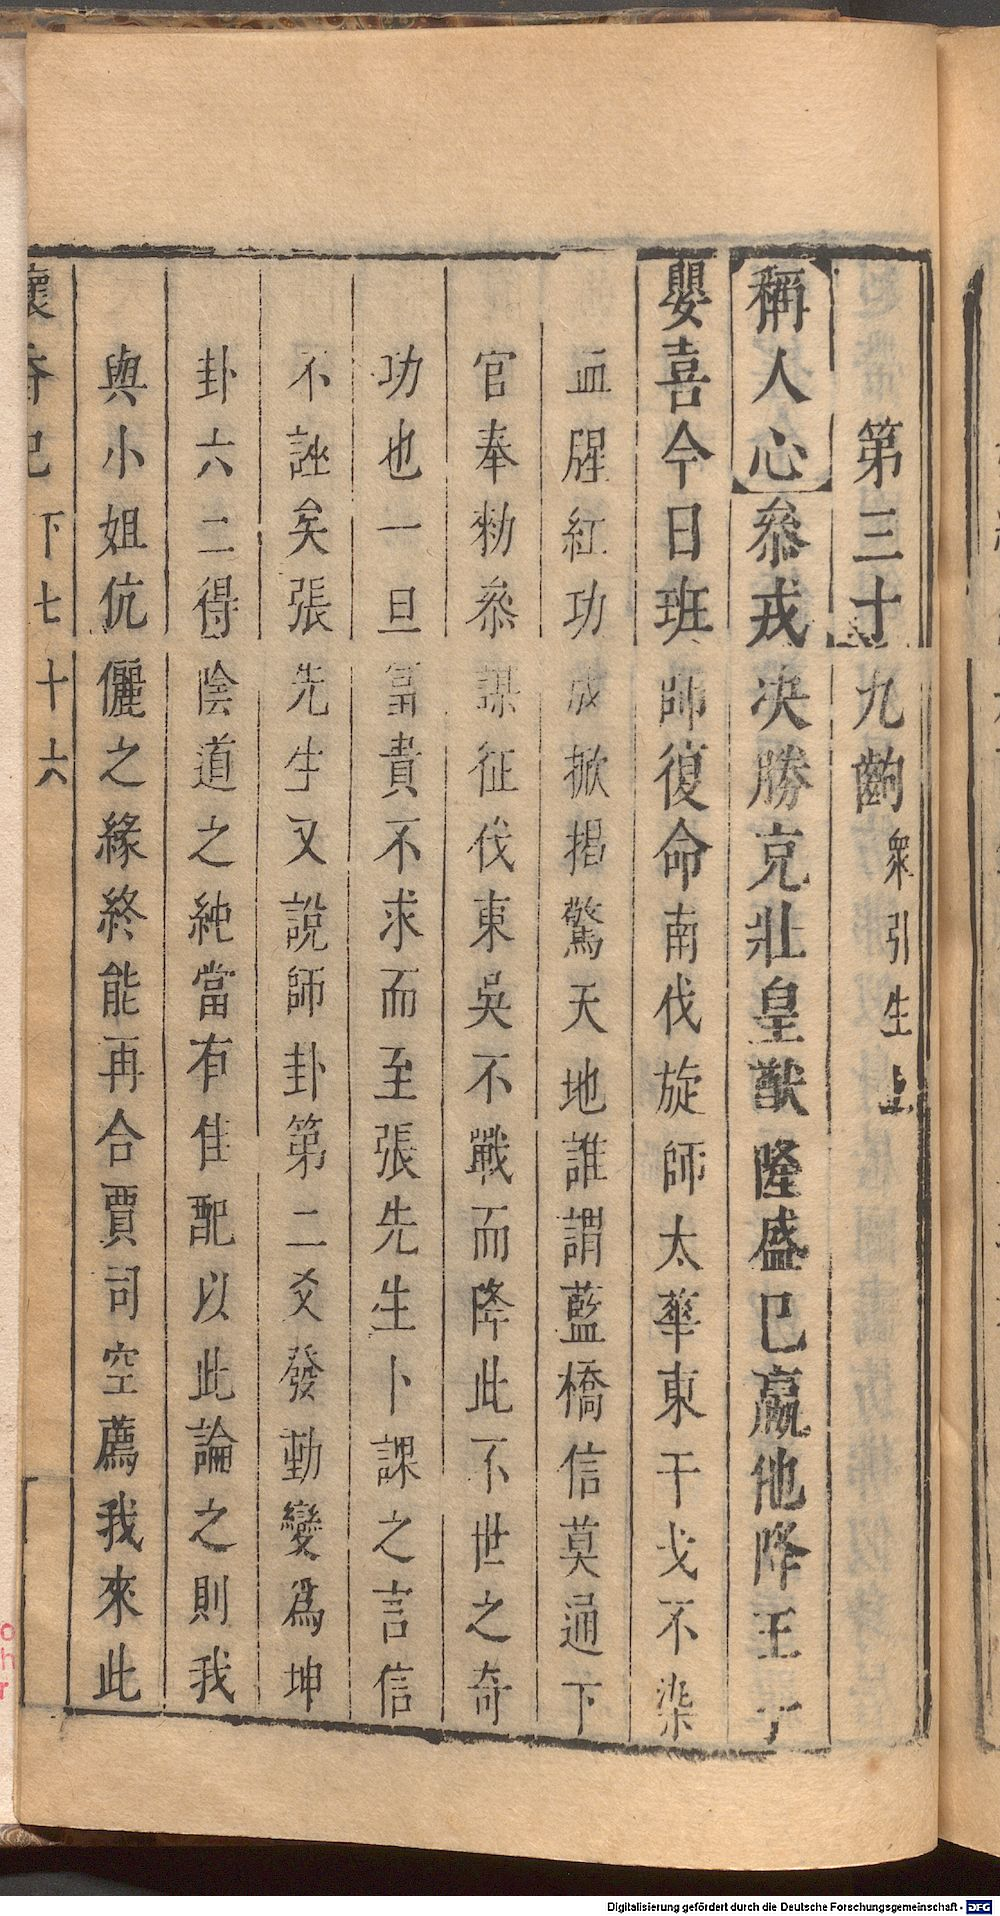 第三十九齣 衆引生上
稱人心參戎决勝克壯皇猷隆盛巳嬴他降王
嬰喜今日班師復命南伐旋師太華東干戈不染
血腥紅功成掀揭驚天地誰謂藍橋信莫通下
官奉勑叅謀征伐東吳不戰而降此不世之奇
功也一旦冨貴不求而至張先生卜課之言信
不誣矣張先生又說師卦第二爻發動變爲坤
卦六二得陰道之純當有佳配以此論之則我
與小姐伉儷之緣終能再合賈司空薦我來此
懷香記 下 七十六
Digitalisierung gefördert durch die Deutsche Forschungsgemeinschaft - DFG